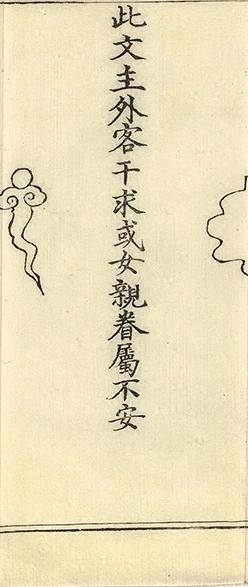 此文主外客干求或女親眷屬不安